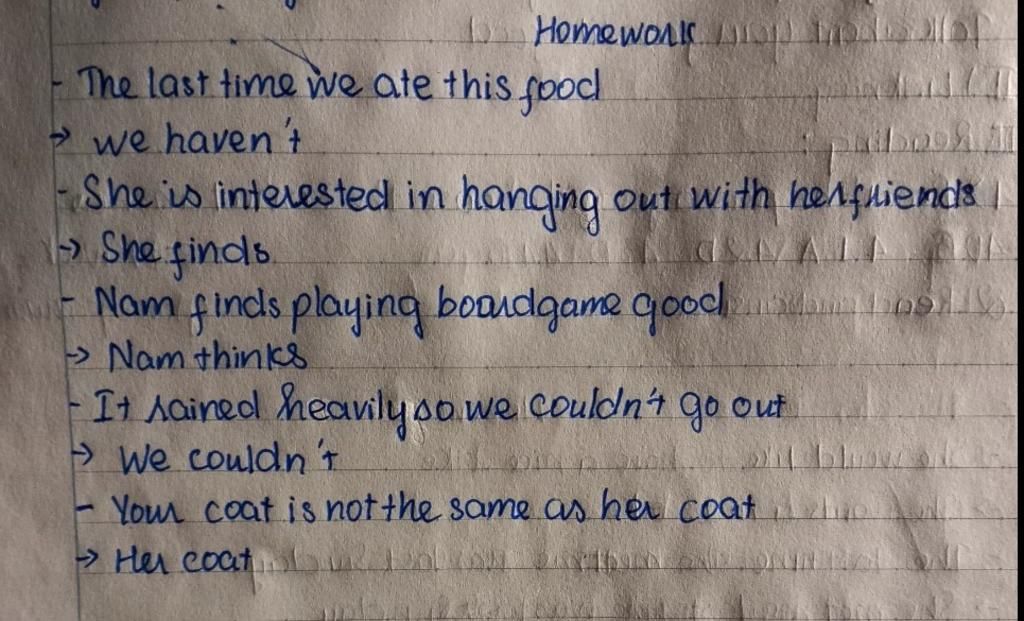 Homework
- The last time we ate this food
→ we haven't
- She is interested in hanging out with her friends
→ She finds
- Nam finds playing boardgame good
→ Nam thinks
- It rained heavily so we couldn't go out
→ We couldn't
- Your coat is not the same as her coat
→ Her coat